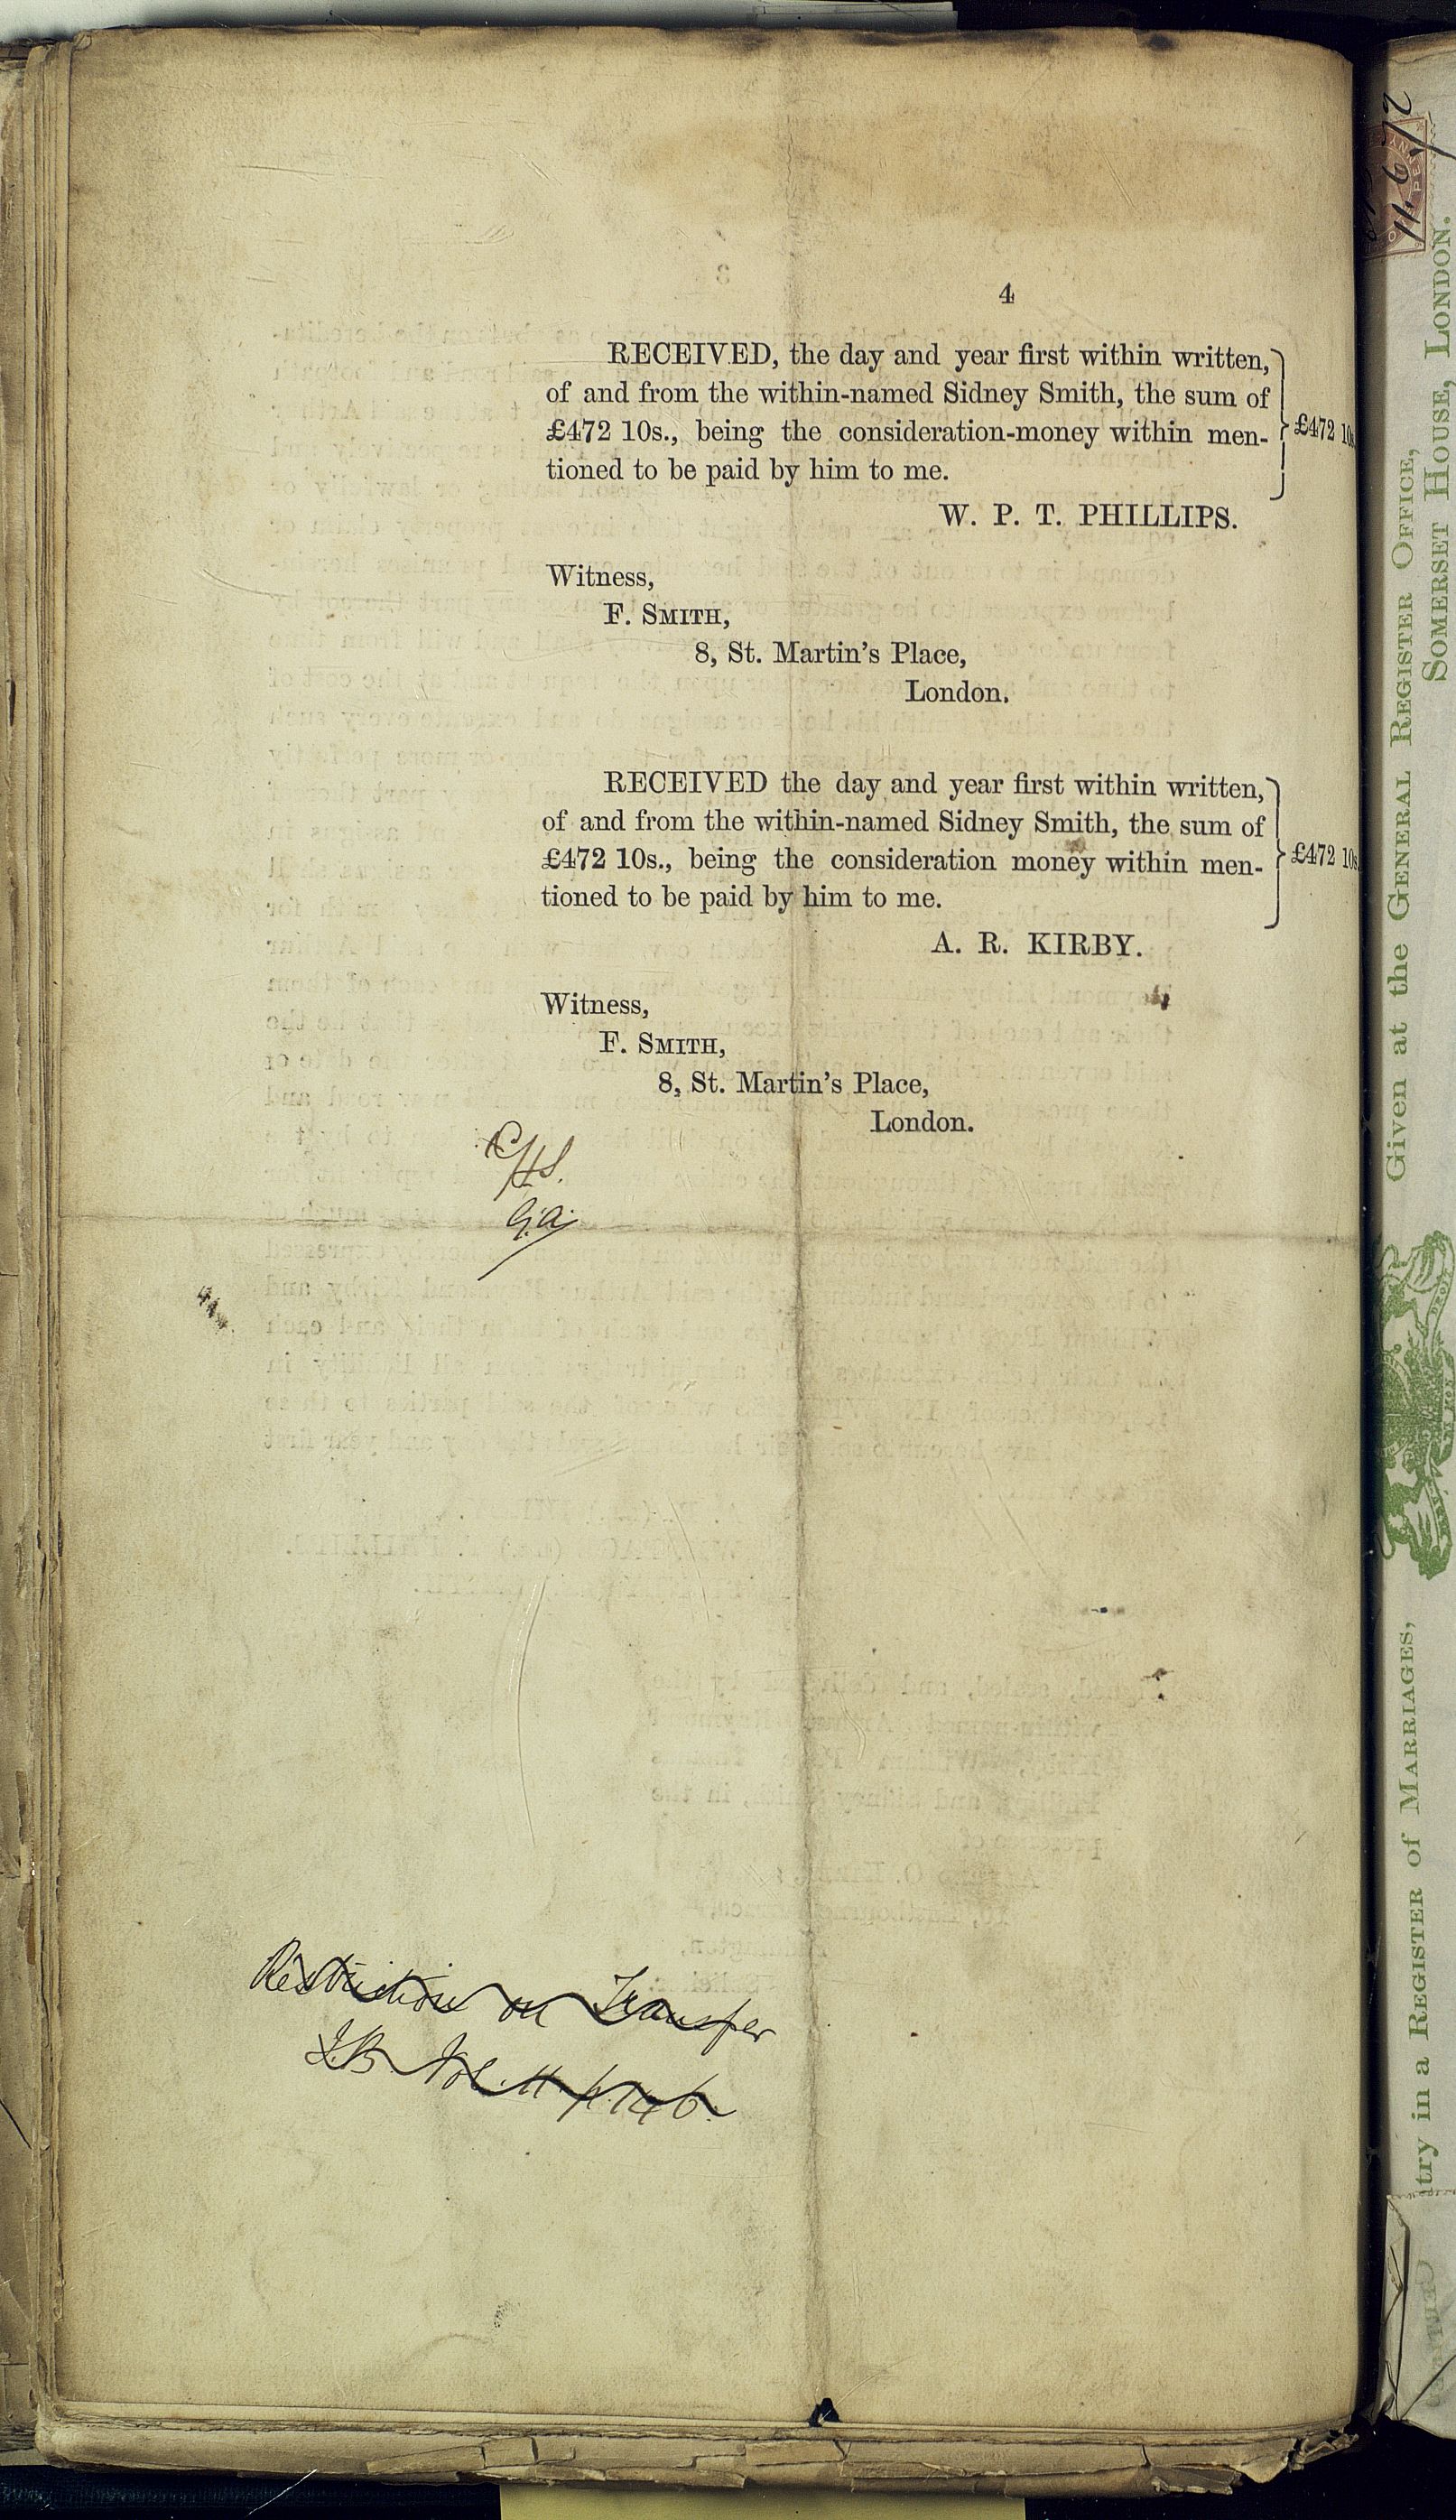 4
RECEIVED, the day and year first within written,
of and from the within-named Sidney Smith, the sum of
£472 10s., being the consideration-money within men-
tioned to be paid by him to me.
£472 10s
W. P. T. PHILLIPS.
Witness,
F. SMITH,
8, St. Martin's Place,
London.
RECEIVED the day and year first within written,
of and from the within-named Sidney Smith, the sum of
£472 10s., being the consideration money within men-
tioned to be paid by him to me.
£472 10s
A. R. KIRBY.
Witness,
F. SMITH,
8, St. Martin's Place,
London.
Restriction on Transfer
Vol. 11 p. 146.
Given at the GENERAL REGISTER OFFICE,
SOMERSET HOUSE, LONDON.
try in a REGISTER of MARRIAGES,